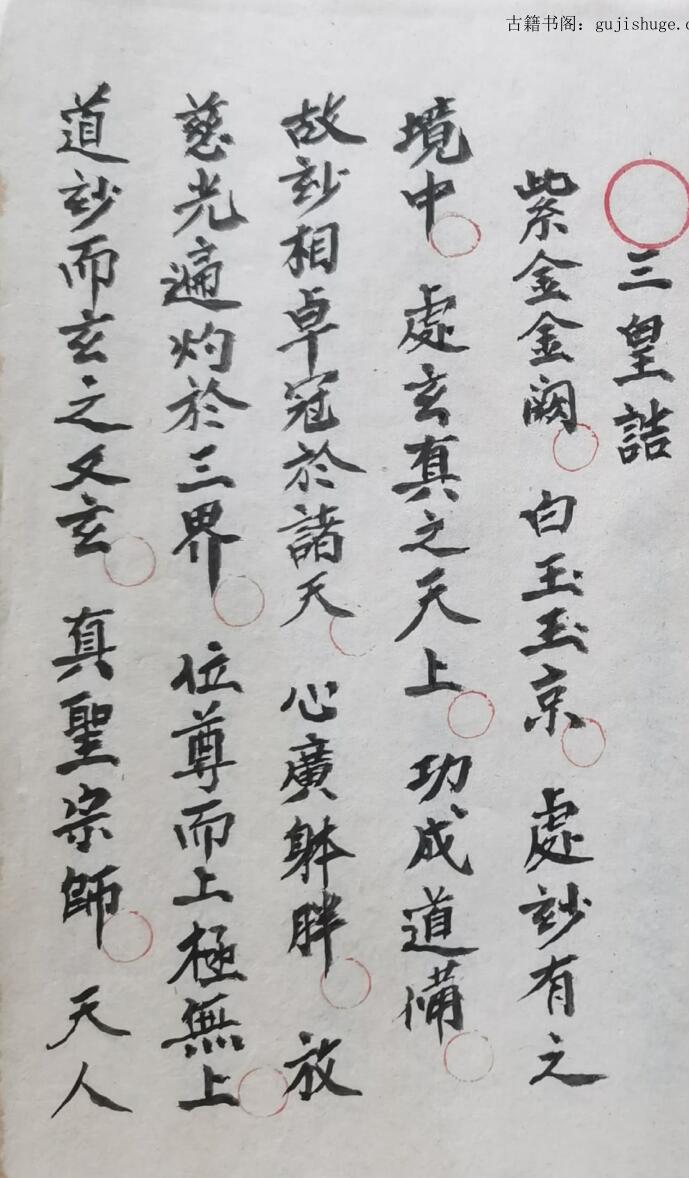 古籍书阁：gujishuge.c
三皇誥
紫金金闕 白玉玉京 處玅有之
境中 處玄真之天上 功成道備
故玅相卓冠於諸天 心廣躰胖 放
慈光遍灼於三界 位尊而上極無上
道玅而玄之又玄 真聖宗師 天人